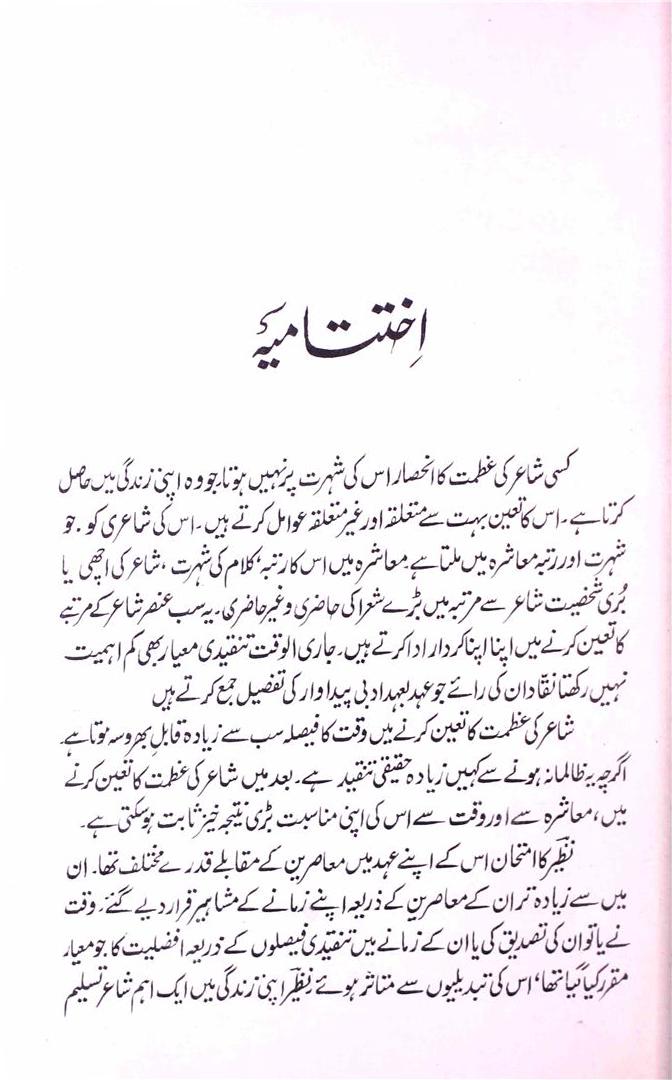 اِختتامیہ
کسی شاعر کی عظمت کا انحصار اس کی شہرت پر نہیں ہوتا، جو وہ اپنی زندگی میں حاصل
کرتا ہے۔ اس کا تعین بہت سے متعلقہ اور غیر متعلقہ عوامل کرتے ہیں۔ اس کی شاعری کو، جو
شہرت اور رتبہ معاشرہ میں ملتا ہے معاشرہ میں اس کا رتبہ، کلام کی شہرت، شاعر کی اچھی یا
بُری شخصیت شاعر سے مرتبہ میں بڑے شعرا کی حاضری و غیر حاضری۔ یہ سب عنصر شاعر کے مرتبے
کا تعین کرنے میں اپنا اپنا کردار ادا کرتے ہیں۔ جاری الوقت تنقیدی معیار بھی کم اہمیت
نہیں رکھتا نقادان کی رائے جو عہد بعہد ادبی پیداوار کی تفصیل جمع کرتے ہیں
شاعر کی عظمت کا تعین کرنے میں وقت کا فیصلہ سب سے زیادہ قابلِ بھروسہ ہوتا ہے۔
اگرچہ یہ ظالمانہ ہونے سے کہیں زیادہ حقیقی تنقید ہے۔ بعد میں شاعر کی عظمت کا تعین کرنے
میں، معاشرہ سے اور وقت سے اس کی اپنی مناسبت بڑی نتیجہ خیز ثابت ہوسکتی ہے۔
نظیر کا امتحان اس کے اپنے عہد میں معاصرین کے مقابلے قدرے مختلف تھا۔ ان
میں سے زیادہ تر ان کے معاصرین کے ذریعہ اپنے زمانے کے مشاہیر قرار دیے گئے۔ وقت
نے یا تو ان کی تصدیق کی یا ان کے زمانے میں تنقیدی فیصلوں کے ذریعہ افضلیت کا جو معیار
مقرر کیا گیا تھا، اس کی تبدیلیوں سے متاثر ہوئے نظیر اپنی زندگی میں ایک اہم شاعر تسلیم